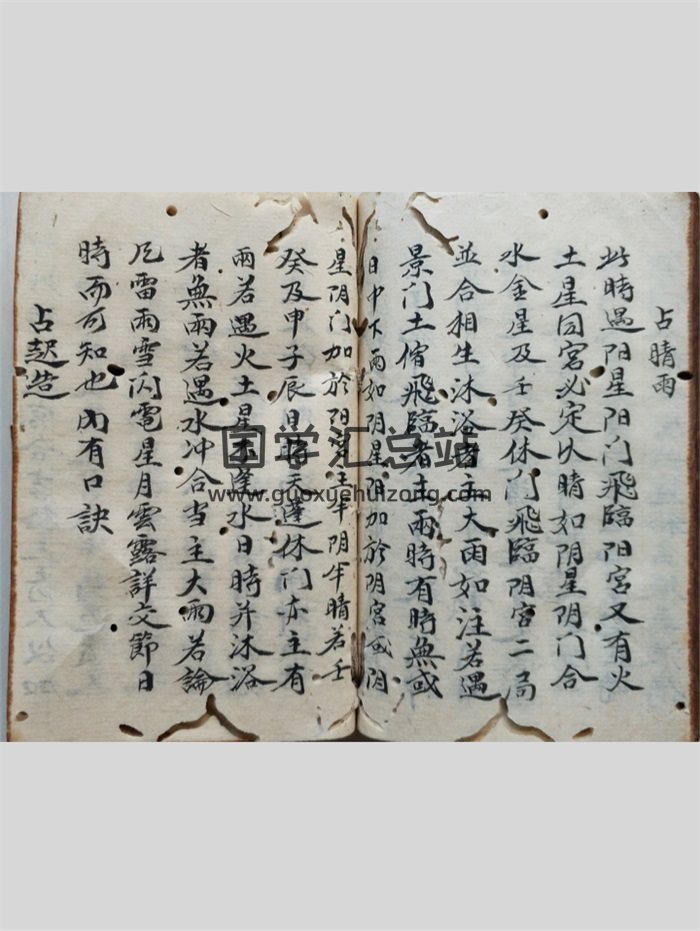 占晴雨
此時遇阳星阳门飛臨阳宫又有火
土星同宫必定以晴如阴星阴门合
水金星及壬癸休门飛臨阴宫二局
並合相生沐浴者主大雨如注若遇
景门土宿飛臨者主雨時有時無或
日中下雨如阴星阴加於阴宫或阴
星阴门加於阳宫主半阴半晴若壬
癸及甲子辰日時天蓬休门亦主有
雨若遇火土星不逢水日時并沐浴
者無雨若遇水冲合当主大雨若論
风雷雨雪闪電星月雲露詳交節日
時而可知也内有口訣
占起造
国学汇总站
www.guoxuehuizong.com